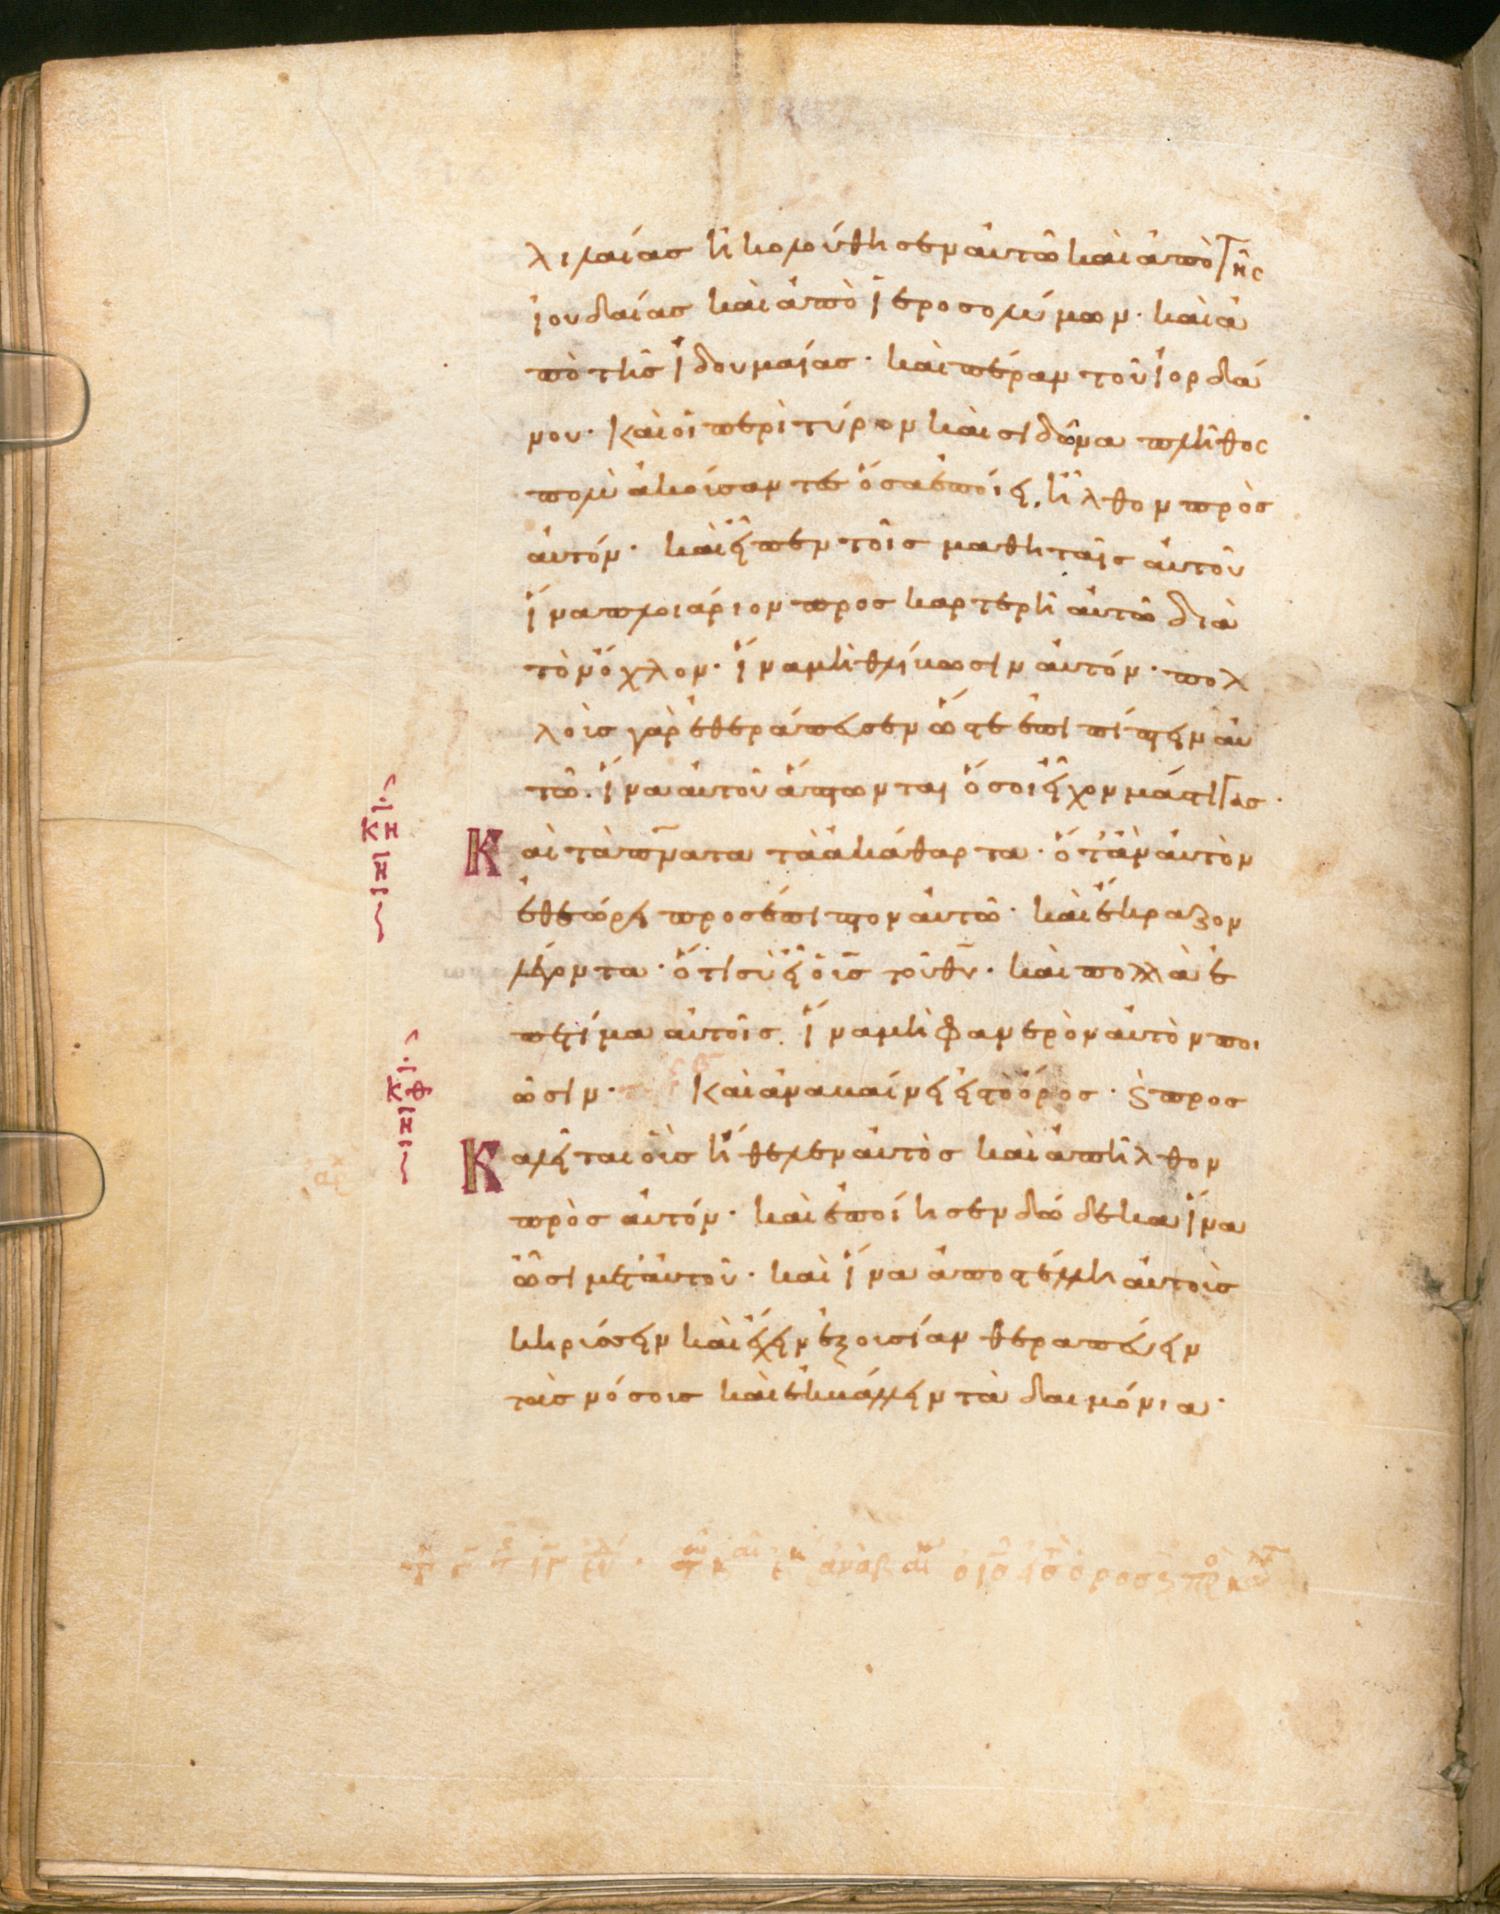 λιλαίας ἠκολούθησεν αὐτῶ καὶ ἀπὸ τῆς
ἰουδαίας καὶ ἀπὸ ἱεροσολύμων· καὶ ἀ
πὸ τῆς ἰδουμαίας· καὶ πέραν τοῦ ἰορδά
νου· καὶ οἱ περὶ τύρον καὶ σιδῶνα πλῆθος
πολὺ ἀκούσαντες ὅσα ἐποίει, ἦλθον πρὸς
αὐτόν· καὶ εἶπεν τοῖς μαθηταῖς αὐτοῦ
ἵνα πλοιάριον προσκαρτερῆ αὐτῶ διὰ
τὸν ὄχλον· ἵνα μὴ θλίβωσιν αὐτόν· πολ
λοὺς γὰρ ἐθεράπευσεν ὥστε ἐπιπίπτειν αὐ
τῶ. ἵνα αὐτοῦ ἅπτωνται ὅσοι εἶχον μάστιγας·
κη
η
Καὶ τὰ πν̅ατα τὰ ἀκάθαρτα· ὅταν αὐτὸν
ἐθεώρει προσέπιπτον αὐτῶ· καὶ ἔκραζον
λέγοντα· ὅτι σὺ εἶ ὁ υἱς τοῦ θυ· καὶ πολλὰ ἐ
πετίμα αὐτοῖς. ἵνα μὴ φανερὸν αὐτὸν ποι
ῶσιν· Καὶ ἀναβαίνει εἰς τὸ ὄρος· ϗ προσ
κθ
η
Καλεῖται οὓς ἤθελεν αὐτὸς καὶ ἀπῆλθον
πρὸς αὐτόν· καὶ ἐποίησεν δώδεκα ἵνα
ὦσι μετ αὐτοῦ· καὶ ἵνα ἀποστέλλη αὐτοὺς
κηρύσσειν καὶ ἔχειν ἐξουσίαν θεραπεύειν
τὰς νόσους καὶ ἐκβάλλειν τὰ δαιμόνια·